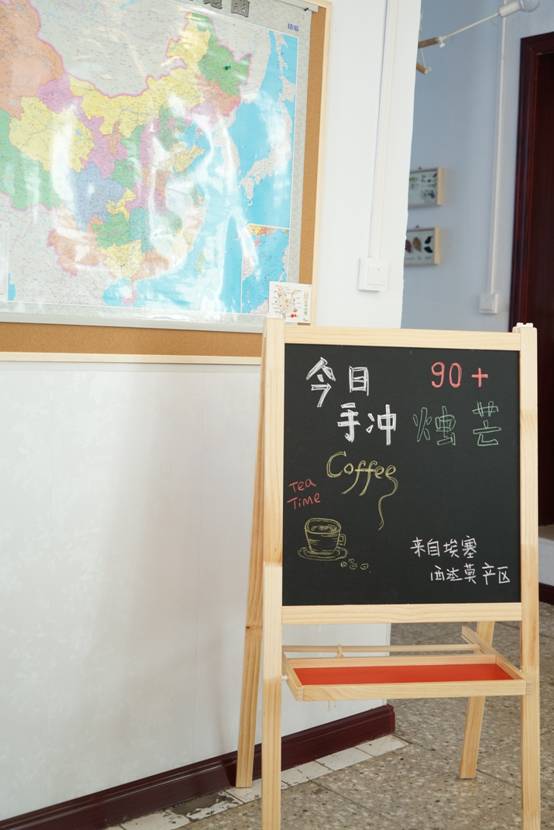 今日
90+
手冲
烛芒
Coffee
Tea
Time
来自埃塞
西达莫产区